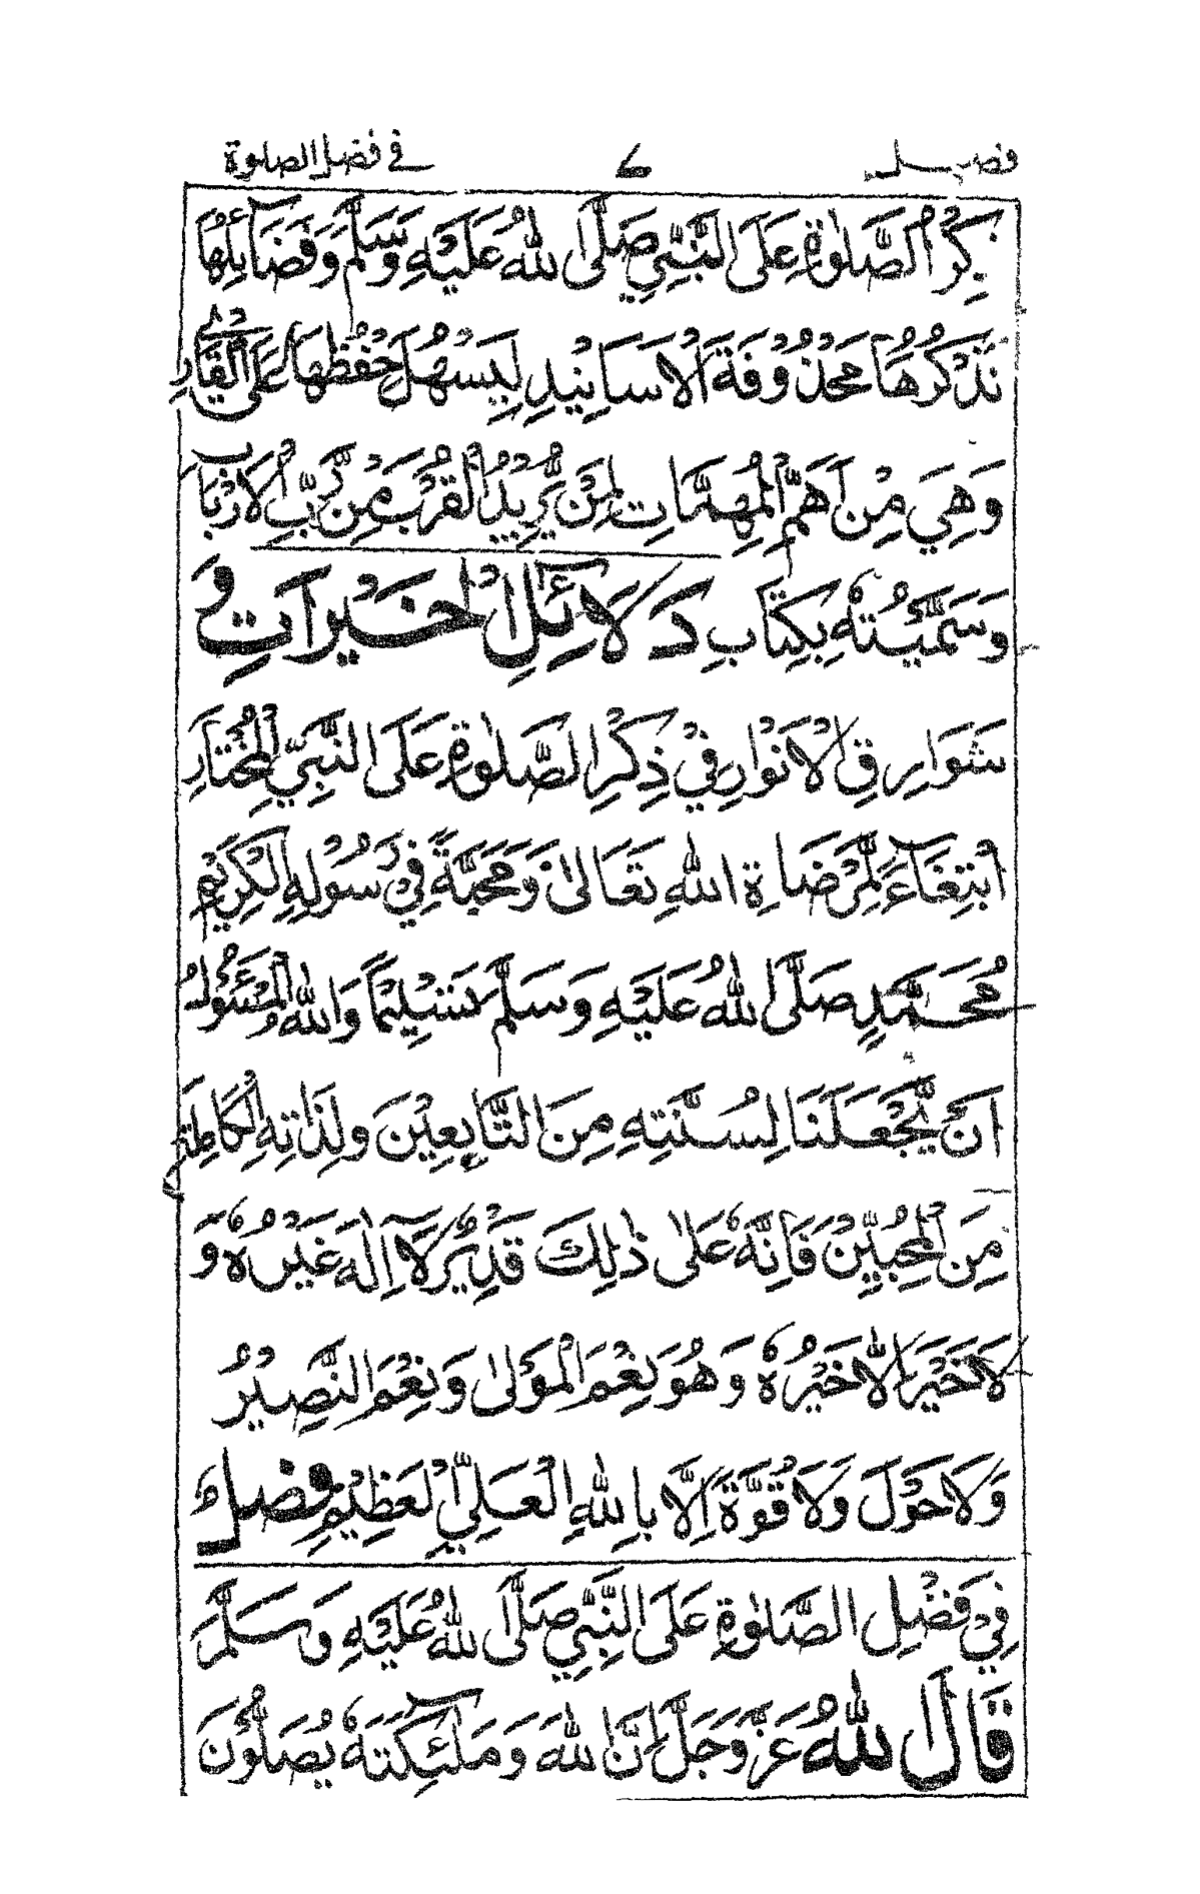 فصل ۷ في فضل الصلوة
ذِكْرُ الصَّلٰوةِ عَلَى النَّبِيِّ صَلَّى اللهُ عَلَيْهِ وَسَلَّمَ وَفَضَآئِلِهَا
نَذْكُرُهَا مَحْذُوْفَةَ الْاَسَانِيْدِ لِيَسْهُلَ حِفْظُهَا عَلَى الْقَارِئِ
وَهِيَ مِنْ اَهَمِّ الْمُهِمَّاتِ لِمَنْ يُّرِيْدُ الْقُرْبَ مِنْ رَّبِّ الْاَرْبَابِ
وَسَمَّيْتُهٗ بِكِتَابِ دَلَآئِلُ الْخَيْرَاتِ وَ
شَوَارِقِ الْاَنْوَارِ فِيْ ذِكْرِ الصَّلٰوةِ عَلَى النَّبِيِّ الْمُخْتَارِ
ابْتِغَآءً لِّمَرْضَاةِ اللهِ تَعَالٰى وَمَحَبَّةً فِيْ رَسُوْلِهِ الْكَرِيْمِ
مُحَمَّدٍ صَلَّى اللهُ عَلَيْهِ وَسَلَّمَ تَسْلِيْمًا وَاللهُ الْمَسْئُوْلُ
اَنْ يَّجْعَلَنَا لِسُنَّتِهٖ مِنَ التَّابِعِيْنَ وَلِذَاتِهِ الْكَامِلَةِ
مِنَ الْمُحِبِّيْنَ فَاِنَّهٗ عَلٰى ذٰلِكَ قَدِيْرٌ لَآ اِلٰهَ غَيْرُهٗ وَ
لَا خَيْرَ اِلَّا خَيْرُهٗ وَهُوَ نِعْمَ الْمَوْلٰى وَنِعْمَ النَّصِيْرُ
وَلَا حَوْلَ وَلَا قُوَّةَ اِلَّا بِاللهِ الْعَلِيِّ الْعَظِيْمِ فَصْلٌ
فِيْ فَضْلِ الصَّلٰوةِ عَلَى النَّبِيِّ صَلَّى اللهُ عَلَيْهِ وَسَلَّمَ
قَالَ اللهُ عَزَّ وَجَلَّ اِنَّ اللهَ وَمَلٰٓئِكَتَهٗ يُصَلُّوْنَ